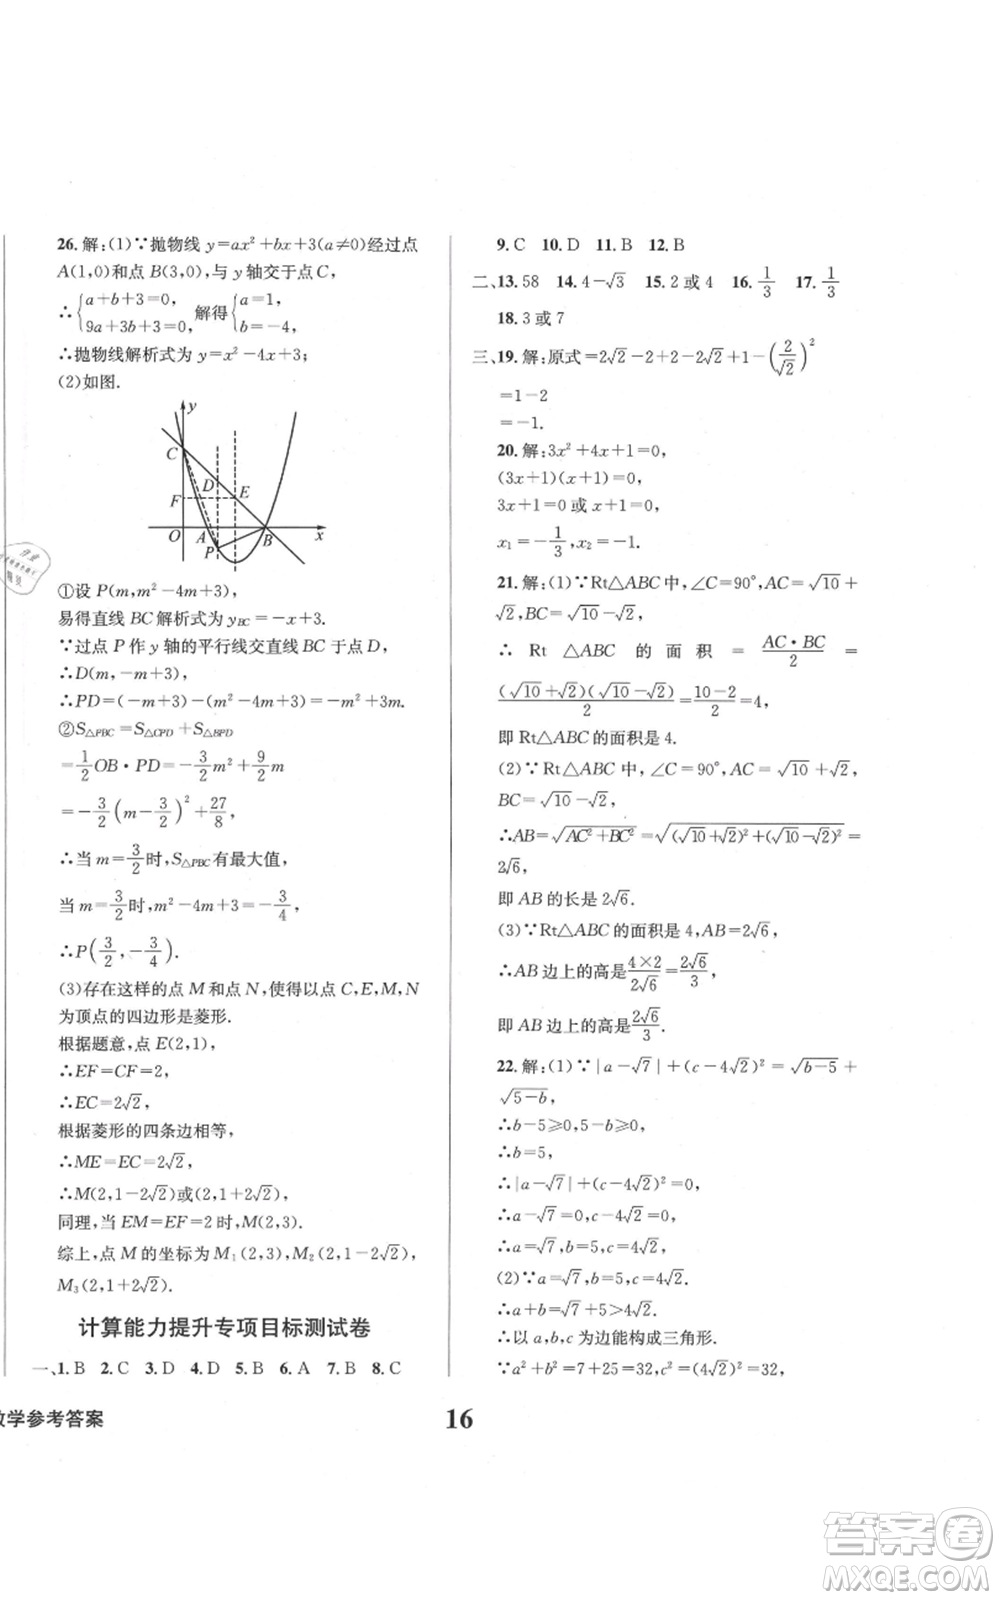 26.解:(1)∵抛物线 y=ax²+bx+3(a≠0)经过点
A(1,0)和点 B(3,0),与 y 轴交于点 C,
∴{a+b+3=0, 9a+3b+3=0, 解得{a=1, b=-4,
∴抛物线解析式为 y=x²-4x+3;
(2)如图.
y
C
D
E
F
O A B x
P
①设 P(m,m²-4m+3),
易得直线 BC 解析式为 y_BC=-x+3.
∵过点 P 作 y 轴的平行线交直线 BC 于点 D,
∴D(m,-m+3),
∴PD=(-m+3)-(m²-4m+3)=-m²+3m.
②S△PBC=S△CPD+S△BPD
=1/2 OB·PD=-3/2 m²+9/2 m
=-3/2(m-3/2)²+27/8,
∴当 m=3/2时,S△PBC有最大值,
当 m=3/2时,m²-4m+3=-3/4,
∴P(3/2,-3/4).
(3)存在这样的点 M 和点 N,使得以点 C,E,M,N
为顶点的四边形是菱形.
根据题意,点 E(2,1),
∴EF=CF=2,
∴EC=2√2,
根据菱形的四条边相等,
∴ME=EC=2√2,
∴M(2,1-2√2)或(2,1+2√2),
同理,当 EM=EF=2 时,M(2,3).
综上,点 M 的坐标为 M₁(2,3),M₂(2,1-2√2),
M₃(2,1+2√2).
计算能力提升专项目标测试卷
一、1.B 2.C 3.D 4.D 5.B 6.A 7.B 8.C
9.C 10.D 11.B 12.B
二、13.58 14.4-√3 15.2 或 4 16.1/3 17.1/3
18.3 或 7
三、19.解:原式=2√2-2+2-2√2+1-(2/√2)²
=1-2
=-1.
20.解:3x²+4x+1=0,
(3x+1)(x+1)=0,
3x+1=0 或 x+1=0,
x₁=-1/3,x₂=-1.
21.解:(1)∵Rt△ABC 中,∠C=90°,AC=√10+
√2,BC=√10-√2,
∴ Rt △ABC 的 面 积 = AC·BC/2 =
(√10+√2)(√10-√2)/2=10-2/2=4,
即 Rt△ABC 的面积是 4.
(2)∵Rt△ABC 中,∠C=90°,AC=√10+√2,
BC=√10-√2,
∴AB=√(AC²+BC²)=√((√10+√2)²+(√10-√2)²)=
2√6,
即 AB 的长是 2√6.
(3)∵Rt△ABC 的面积是 4,AB=2√6,
∴AB 边上的高是4×2/2√6=2√6/3,
即 AB 边上的高是2√6/3.
22.解:(1)∵|a-√7|+(c-4√2)²=√(b-5)+
√(5-b),
∴b-5≥0,5-b≥0,
∴b=5,
∴|a-√7|+(c-4√2)²=0,
∴a-√7=0,c-4√2=0,
∴a=√7,c=4√2,
(2)∵a=√7,b=5,c=4√2,
∴a+b=√7+5>4√2,
∴以 a,b,c 为边能构成三角形.
∵a²+b²=7+25=32,c²=(4√2)²=32,
数学参考答案
16
答案圈
MXQE.COM